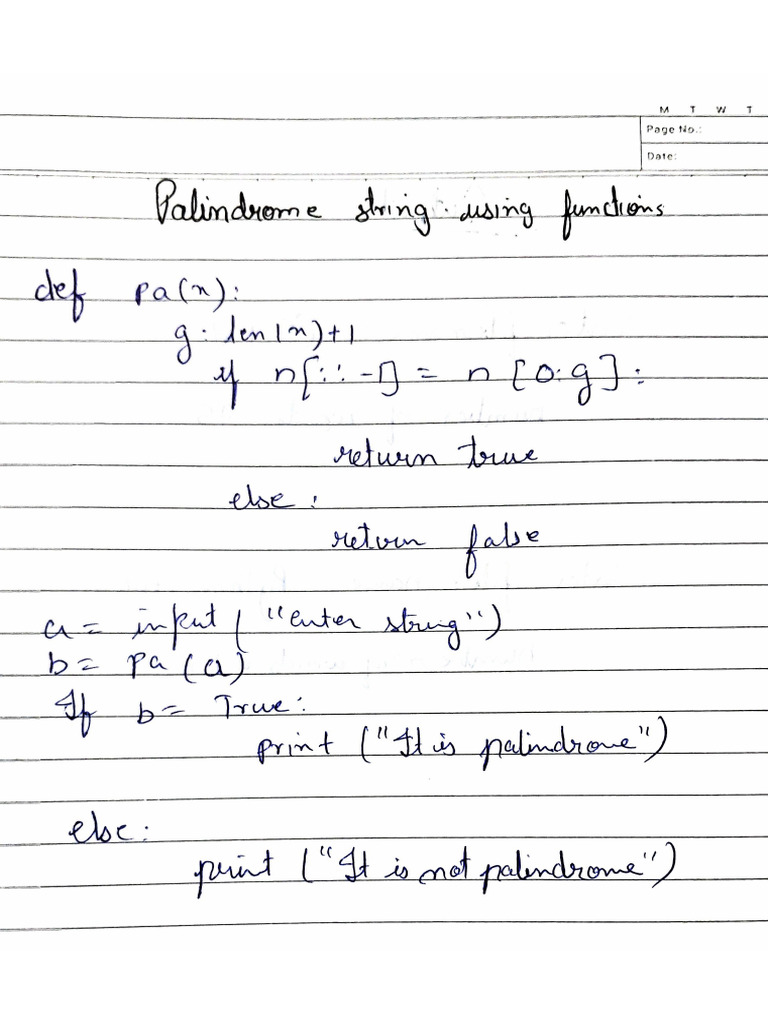 M T W T
Page No.:
Date:
Palindrome string using functions
def pa(n):
g: len(n)+1
if n[::-1] = n[0:g]:
return true
else:
return false
a = input("enter string")
b = pa(a)
If b = True:
print("It is palindrome")
else:
print("It is not palindrome")